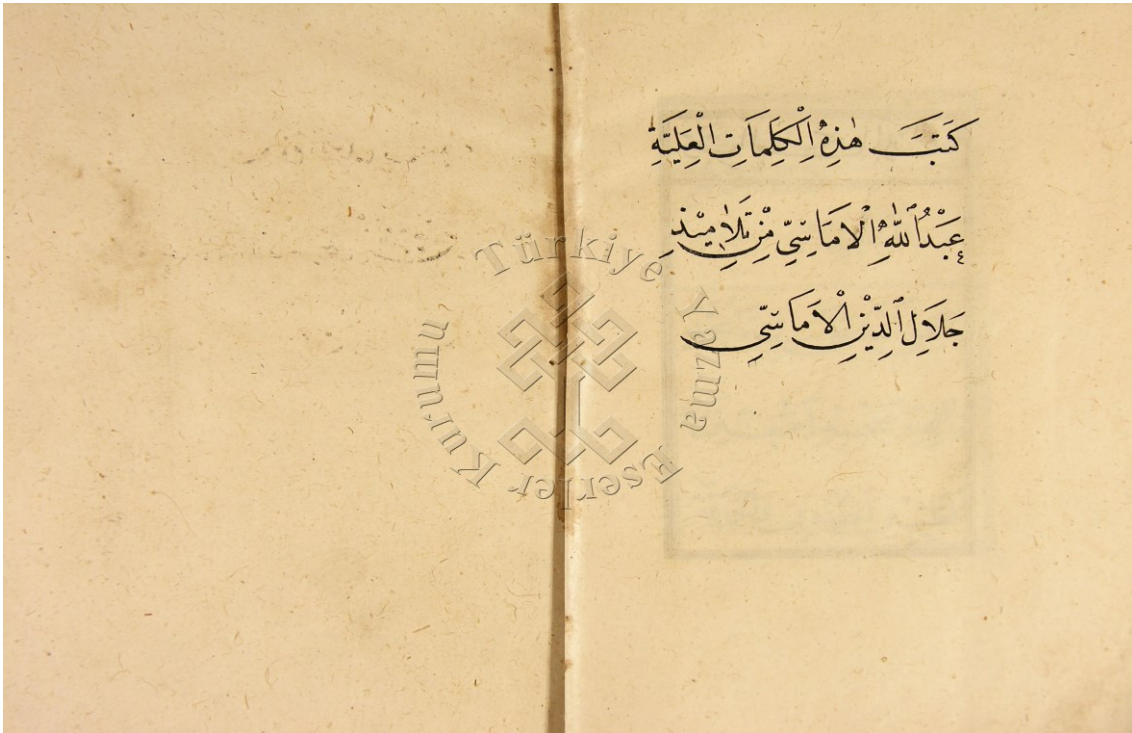 كَتَبَ هٰذِهِ الْكَلِمَاتِ الْعَلِيَّةِ
عَبْدُ اللّٰهِ الْاَمَاسِيّ مِنْ تَلَامِيْذِ
جَلَالِ الدِّيْنِ الْاَمَاسِيّ
Türkiye Yazma Eserler Kurumu